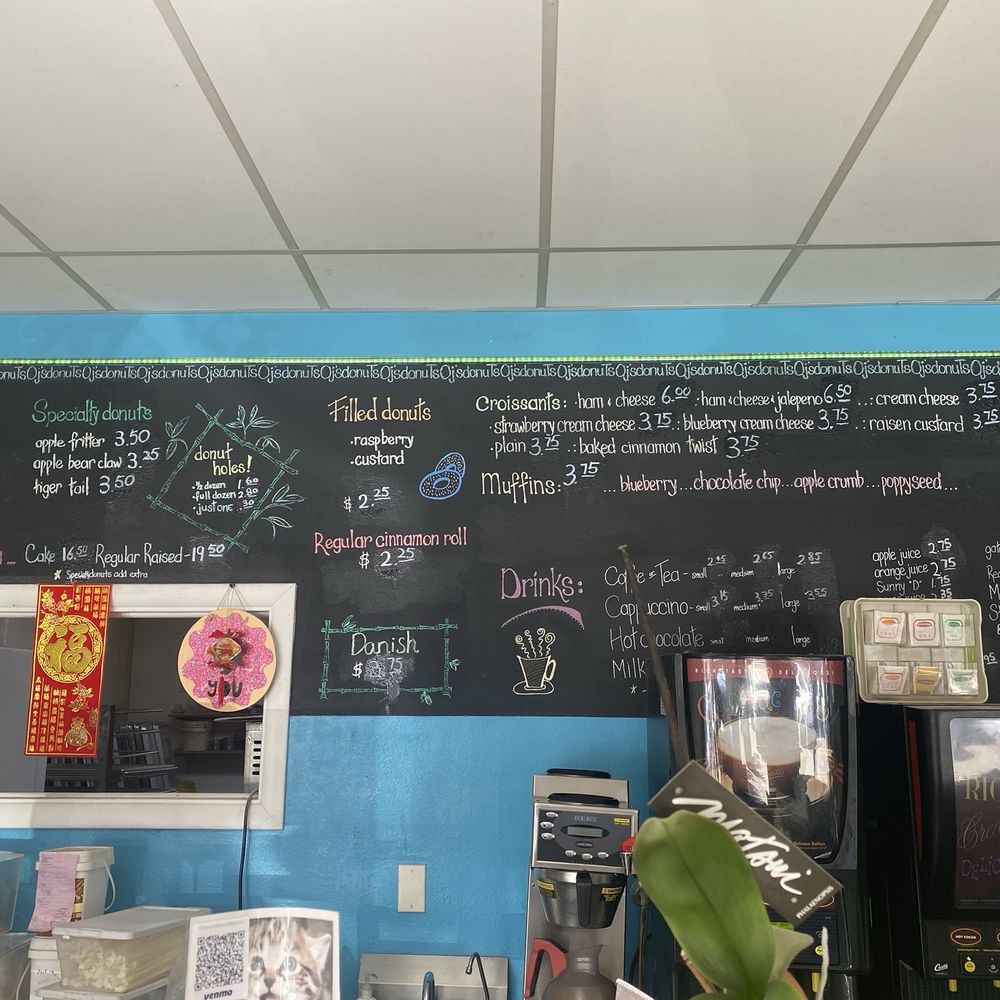 OjsdonuTsOjsdonuTsOjsdonuTsOjsdonuTsOjsdonuTsOjsdonuTsOjsdonuTsOjsdonuTsOjsdonuTsOjsdonuTsOjsdonuTsOjsdonuTsOjsdonuTsOjsdonuTsOjsdonuTsOjsdonuTs
Specialty donuts
apple fritter 3.50
apple bear claw 3.25
tiger tail 3.50
donut
holes!
• ½ dozen 1.60
• full dozen
• just one
Cake 16.50 Regular Raised - 19.50
Specialty donuts add extra
Filled donuts
• raspberry
• custard
$ 2.25
Regular cinnamon roll
$ 2.25
Danish
Croissants: • ham & cheese 6.00 • ham & cheese & jalepeno 6.50 ...: cream cheese 3.75
• strawberry cream cheese 3.75 .: blueberry cream cheese 3.75 .: raisen custard 3.75
• plain 3.75 .: baked cinnamon twist 3.75
Muffins: 3.75 ... blueberry... chocolate chip... apple crumb... poppyseed...
Drinks:
Tea - small medium 2.65 large 2.85
Cappuccino - small 3.15 medium 3.35 large 3.55
small medium large
Milk
apple juice 2.75
orange juice 2.75
Sunny "D" 1.75
福
YOU
venmo
Motomi
PHALAENOPSIS
Release Button
HOT COCOA